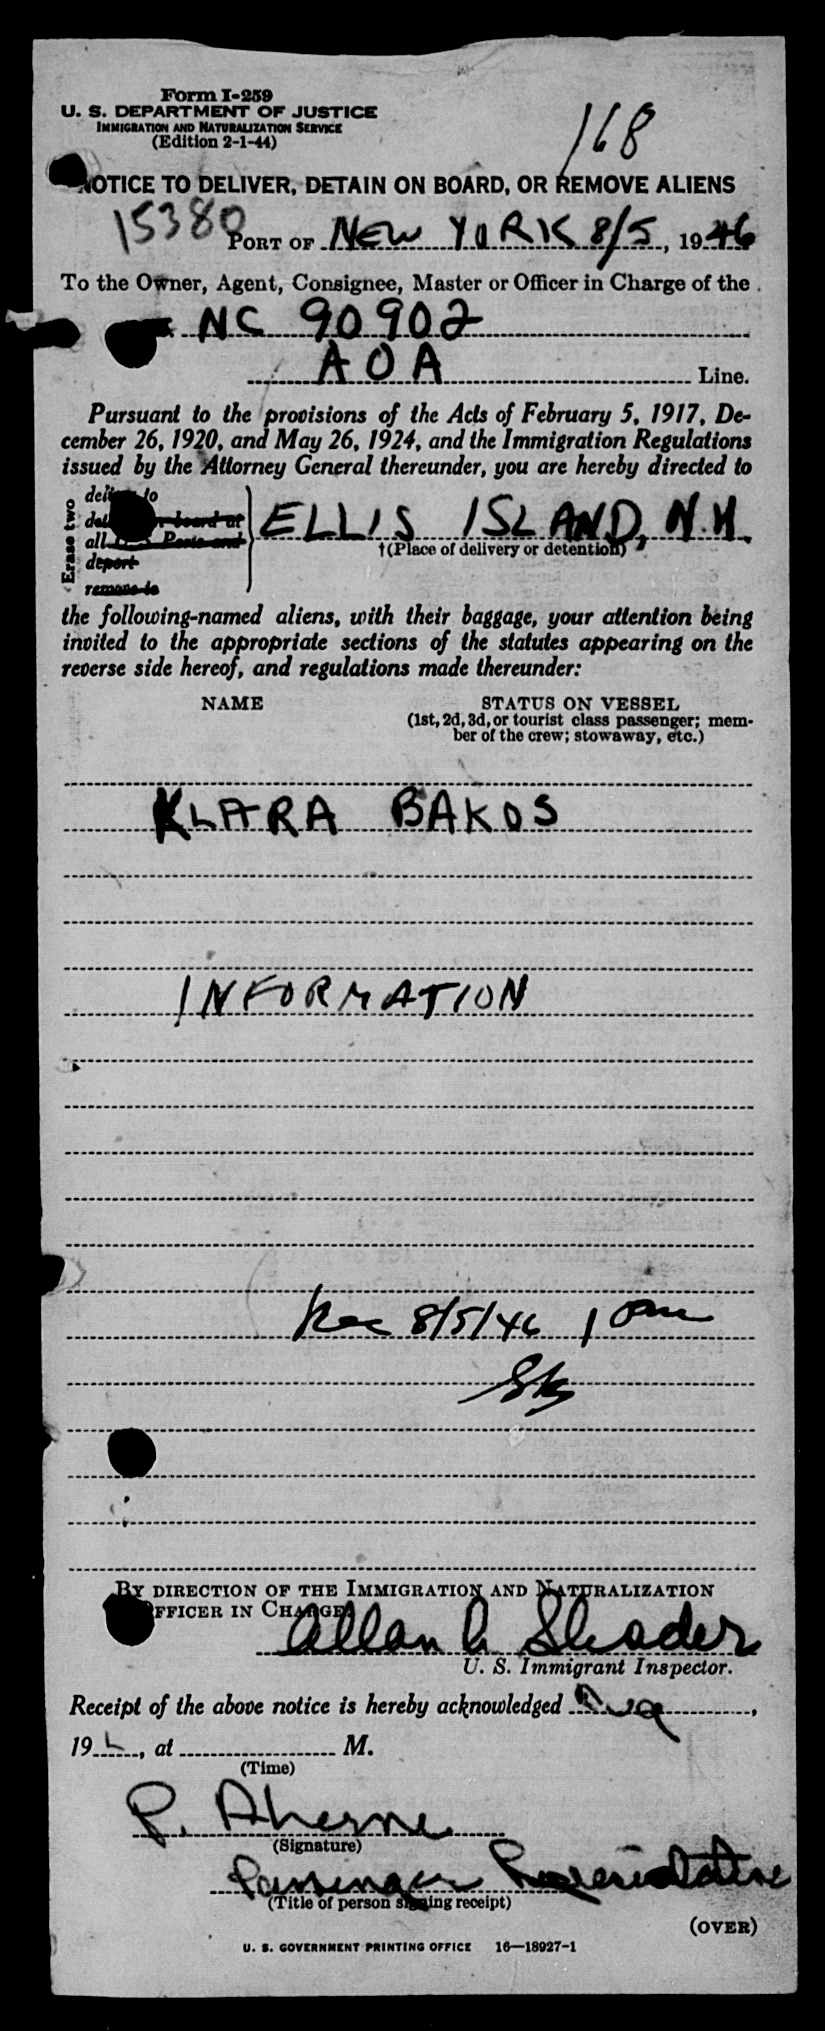 Form I-259
U. S. DEPARTMENT OF JUSTICE
IMMIGRATION AND NATURALIZATION SERVICE
(Edition 2-1-44)
168
NOTICE TO DELIVER, DETAIN ON BOARD, OR REMOVE ALIENS
15380
PORT OF NEW YORK 8/5, 1946
To the Owner, Agent, Consignee, Master or Officer in Charge of the
NC 90902
AOA Line.
Pursuant to the provisions of the Acts of February 5, 1917, De-
cember 26, 1920, and May 26, 1924, and the Immigration Regulations
issued by the Attorney General thereunder, you are hereby directed to
Erase two
deliver to
board at
all U.S. Ports and
deport
remove to
ELLIS ISLAND, N.H.
†(Place of delivery or detention)
the following-named aliens, with their baggage, your attention being
invited to the appropriate sections of the statutes appearing on the
reverse side hereof, and regulations made thereunder:
NAME STATUS ON VESSEL
(1st, 2d, 3d, or tourist class passenger; mem-
ber of the crew; stowaway, etc.)
KLARA BAKOS
INFORMATION
Rec 8/5/46 1 pm
BY DIRECTION OF THE IMMIGRATION AND NATURALIZATION
OFFICER IN CHARGE
Allan A. Shader
U. S. Immigrant Inspector.
Receipt of the above notice is hereby acknowledged Aug,
19, at M.
(Time)
P. Aherne
(Signature)
Passenger Representative
(Title of person signing receipt)
(OVER)
U. S. GOVERNMENT PRINTING OFFICE 16—18927-1